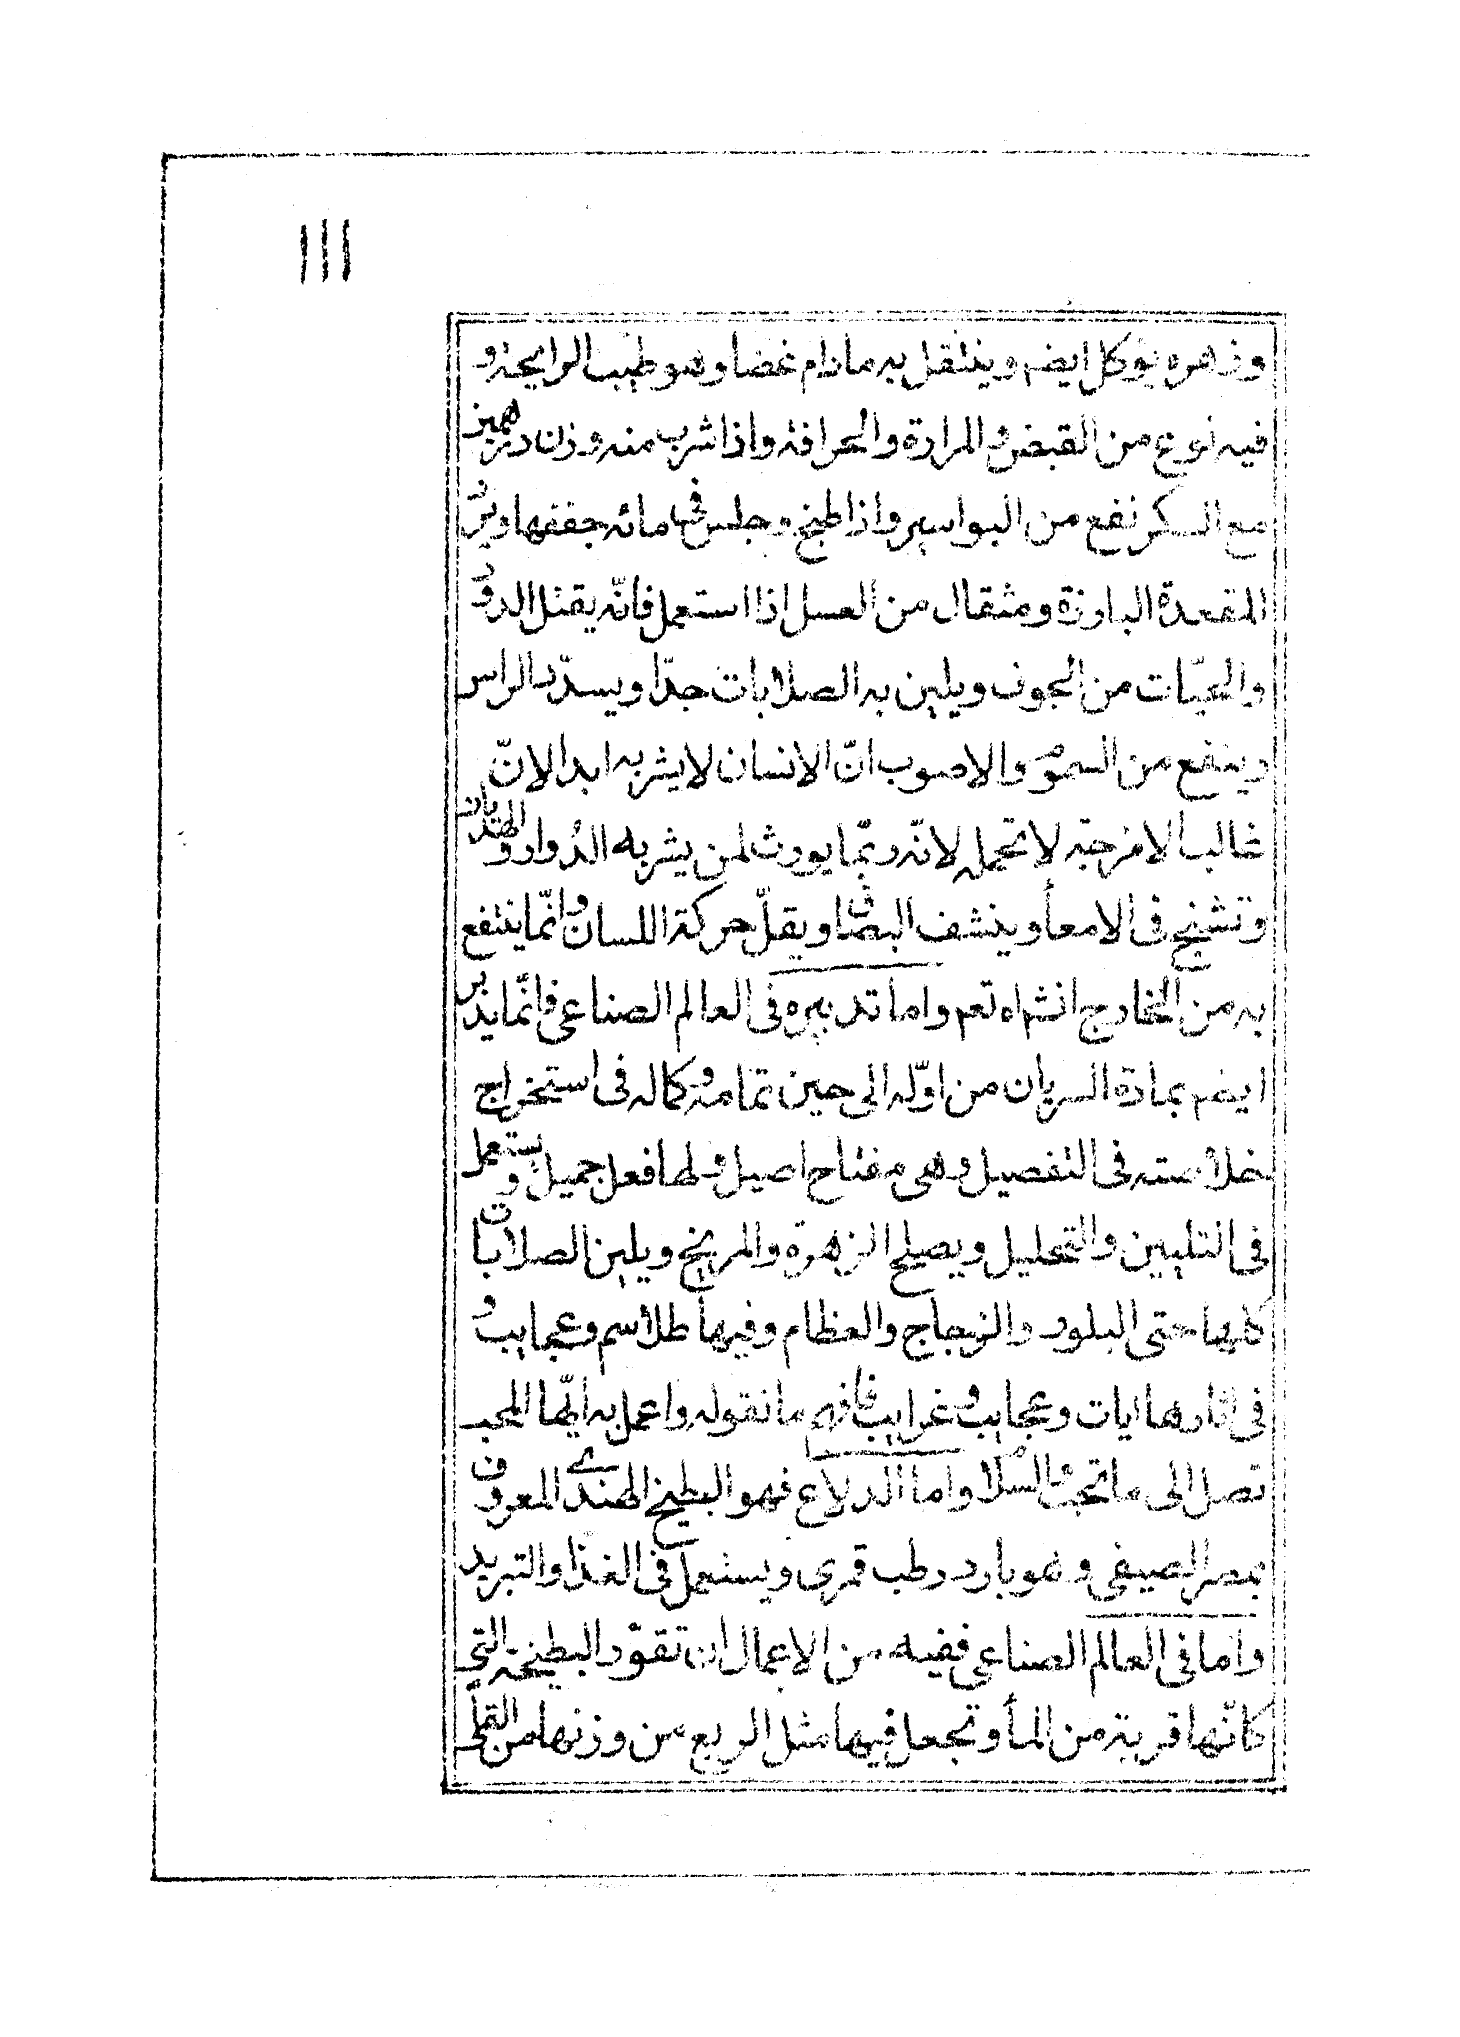 ١١١
وزهره يوكل ايضم وينتقل به مادام غضا وهو طيب الرايحة و
فيه نوع من القبض والمرارة والحرافة واذا شرب منه وزن درهمين
مع السكر نفع من البواسير واذا طبخ وجلس فى مائه جففها ويرد
المقعدة البارزة ومثقال من العسل اذا استعمل فانّه يقتل الدود
والحيّات من الجوف ويلين به الصلابات جدّا ويسدّد الراس
وينفع من السموم والاصوب انّ الانسان لا يشربه ابدا لانّ
غالب الامزجة لا تحمله لانّه ربّما يورث لمن يشربه الدُوار والهذيان
وتشنج فى الامعأ وينشف البصاق ويقلّ حركة اللسان وانّما ينتفع
به من الخارج انشاه تعم واما تدبيره فى العالم الصناعى فانّما يدبر
ايضم بمادة السريان من اوّله الى حين تمامه وكماله فى استخراج
خلاصته فى التفصيل وهى مفتاح اصيل ولها فعل جميل ويستعمل
فى التليين والتحليل ويصلح الزهرة والمريخ ويلين الصلابات
كلها حتى البلور والزجاج والعظام وفيها طلاسم وعجايب و
فى اثارها ايات وعجايب وغرايب فافهم ما نقوله واعمل به ايّها المحب
تصل الى ما تحب والسلام واما الدلاع فهو البطيخ الهندى المعروف
بمصر الصيفى وهو بارد رطب قمرى ويستعمل فى الغذا والتبريد
واما فى العالم الصناعى ففيه من الاعمال ان تقوّر البطيخة التى
كانّها قربة من المأ وتجعل فيها مثل الربع من وزنها من القلى